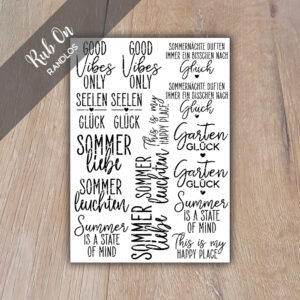 Rub On
RANDLOS
GOOD
Vibes
ONLY
GOOD
Vibes
ONLY
SOMMERNÄCHTE DUFTEN
IMMER EIN BISSCHEN NACH
Glück
SEELEN
GLÜCK
SEELEN
GLÜCK
SOMMERNÄCHTE DUFTEN
IMMER EIN BISSCHEN NACH
Glück
SOMMER
liebe
This is my
HAPPY PLACE
Garten
GLÜCK
SOMMER
leuchten
SOMMER
leuchten
Garten
GLÜCK
Summer
IS A STATE
OF MIND
SOMMER
liebe
Summer
IS A STATE
OF MIND
This is my
HAPPY PLACE